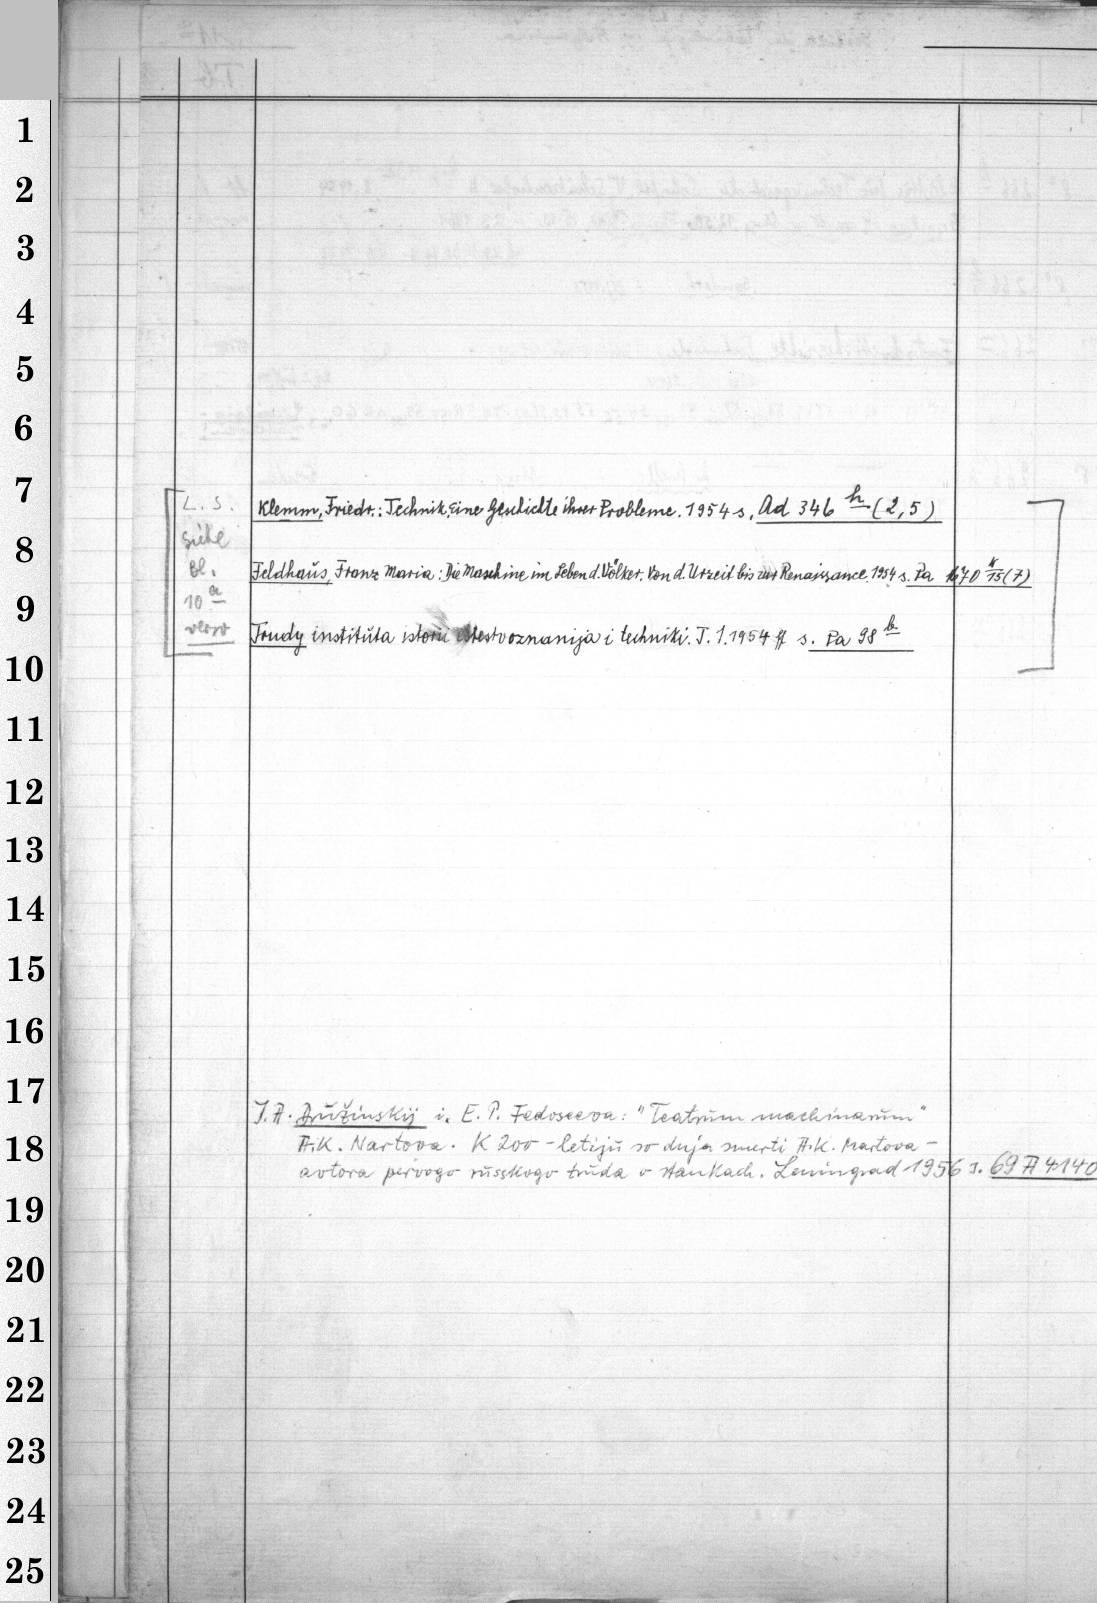 1
2
3
4
5
6
7
8
9
10
11
12
13
14
15
16
17
18
19
20
21
22
23
24
25
L. S.
siehe
Bl.
10 a
verso
Klemm, Friedr.: Technik, Eine Geschichte ihrer Probleme. 1954 s. Ad 346 h (2,5)
Feldhaus, Franz Maria: Die Maschine im Leben d. Völker. Von d. Urzeit bis zur Renaissance. 1954 s. Pa 1670 /15 (7)
Trudy instituta istorii estestvoznanija i techniki. T. 1. 1954 ff s. Pa 98 b
J. A. Družinskij i. E. P. Fedoseeva: "Teatrum machinarum"
A. K. Nartova. K 200-letiju so dnja smerti A. K. Martova -
avtora pervogo russkogo truda o stankach. Leningrad 1956 s. 69 A 4140